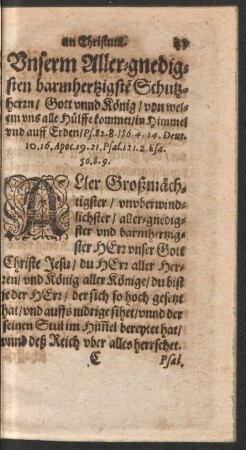 an Christum.
Vnserm Aller-gnedig-
sten barmhertzigstẽ Schutz-
herrn / Gott vnnd König / von wel-
em vns alle Hülffe kommet / in Himmel
vnd auff Erden / Ps. 82. 8. 186. 4. 14. Deut.
10. 16. Apoc. 19. 21. Psal. 121. 2. Esa.
50. 8. 9.
ALler Großmäch-
tigster / vnvberwind-
lichster / aller-gnedig-
ster vnd barmhertzig-
ster HErr vnser Gott
Christe Jesu / du HErr aller Her-
ren / vnd König aller Könige / du bist
je der HErr / der sich so hoch gesetzt
hat / vnd auffs nidrige sihet / vnnd der
seinen Stul im Him̃el bereytet hat /
vnnd deß Reich vber alles herrschet.
C Psal.